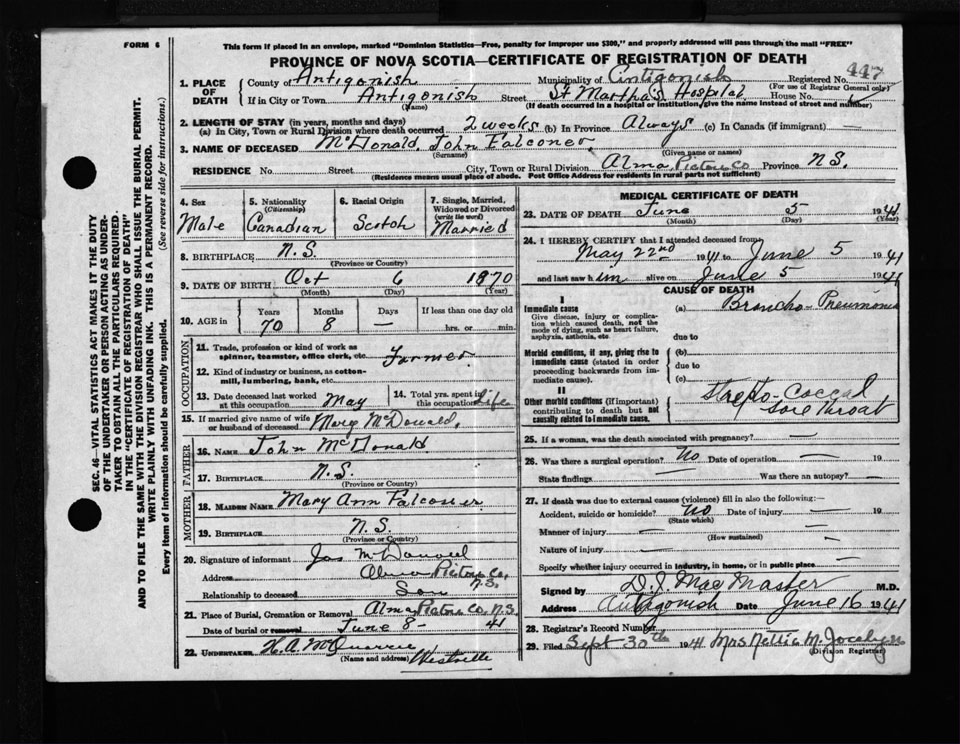 FORM 6
This form if placed in an envelope, marked "Dominion Statistics—Free, penalty for improper use $300," and properly addressed will pass through the mail "FREE"
PROVINCE OF NOVA SCOTIA—CERTIFICATE OF REGISTRATION OF DEATH
SEC. 46—VITAL STATISTICS ACT MAKES IT THE DUTY
OF THE UNDERTAKER OR PERSON ACTING AS UNDER-
TAKER TO OBTAIN ALL THE PARTICULARS REQUIRED
IN THE "CERTIFICATE OF REGISTRATION OF DEATH"
AND TO FILE THE SAME WITH THE DIVISION REGISTRAR WHO SHALL ISSUE THE BURIAL PERMIT.
WRITE PLAINLY WITH UNFADING INK. THIS IS A PERMANENT RECORD.
Every item of information should be carefully supplied. (See reverse side for instructions.)
1. PLACE OF DEATH
County of Antigonish Municipality of Antigonish Registered No. 447
(For use of Registrar General only)
If in City or Town Antigonish Street St Martha's Hospital House No.
(Name) (If death occurred in a hospital or institution, give the name instead of street and number)
2. LENGTH OF STAY (in years, months and days)
(a) In City, Town or Rural Division where death occurred 2 weeks (b) In Province Always (c) In Canada (if immigrant) —
3. NAME OF DECEASED McDonald, John Falconer
(Surname) (Given name or names)
RESIDENCE No. Street City, Town or Rural Division Alma Pictou Co Province N.S.
(Residence means usual place of abode. Post Office Address for residents in rural parts not sufficient)
4. Sex Male
5. Nationality (Citizenship) Canadian
6. Racial Origin Scotch
7. Single, Married, Widowed or Divorced (write the word) Married
8. BIRTHPLACE N.S.
(Province or Country)
9. DATE OF BIRTH Oct 6 1870
(Month) (Day) (Year)
10. AGE in Years Months Days If less than one day old
70 8 — hrs. or min.
OCCUPATION
11. Trade, profession or kind of work as spinner, teamster, office clerk, etc. Farmer
12. Kind of industry or business, as cotton-mill, lumbering, bank, etc.
13. Date deceased last worked at this occupation May
14. Total yrs. spent in this occupation Life
15. If married give name of wife or husband of deceased Mary McDonald
FATHER
16. NAME John McDonald
17. BIRTHPLACE N.S.
(Province or Country)
MOTHER
18. MAIDEN NAME Mary Ann Falconer
19. BIRTHPLACE N.S.
(Province or Country)
20. Signature of informant Jas McDonald
Address Alma Pictou Co. N.S.
Relationship to deceased Son
21. Place of Burial, Cremation or Removal Alma Pictou Co. N.S.
Date of burial or removal June 8 - 41
22. UNDERTAKER H. A. McQuarrie
(Name and address) Westville
MEDICAL CERTIFICATE OF DEATH
23. DATE OF DEATH June 5 1941
(Month) (Day) (Year)
24. I HEREBY CERTIFY that I attended deceased from
May 22nd 1941 to June 5 1941
and last saw him alive on June 5 1941
CAUSE OF DEATH
I
Immediate cause (a) Broncho-Pneumonia
Give disease, injury or complication which caused death, not the mode of dying, such as heart failure, asphyxia, asthenia, etc.
due to
Morbid conditions, if any, giving rise to immediate cause (stated in order proceeding backwards from immediate cause).
(b)
due to
(c)
II
Other morbid conditions (if important) contributing to death but not causally related to immediate cause.
Strepto-Coccal
Sore Throat
25. If a woman, was the death associated with pregnancy? —
26. Was there a surgical operation? No Date of operation — 19
State findings — Was there an autopsy? —
27. If death was due to external causes (violence) fill in also the following:—
Accident, suicide or homicide? No Date of injury — 19
(State which)
Manner of injury — —
(How sustained)
Nature of injury —
Specify whether injury occurred in industry, in home, or in public place —
Signed by D. J. MacMaster M.D.
Address Antigonish Date June 16 1941
28. Registrar's Record Number
29. Filed Sept 30th 1941 Mrs Nellie M. Jocelyn
(Division Registrar)